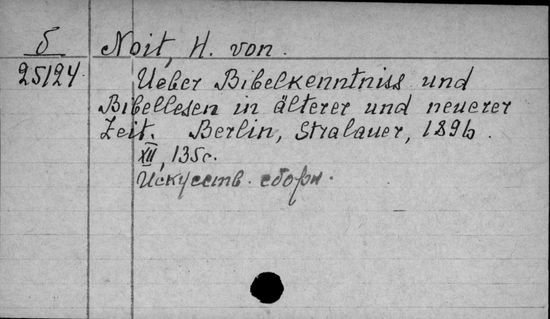 б
25124
Noit, H. von.
Ueber Bibelkenntniss und
Bibellesen in älterer und neuerer
Zeit. Berlin, Stralauer, 1896.
XII, 135 с.
Искусств. сборн.